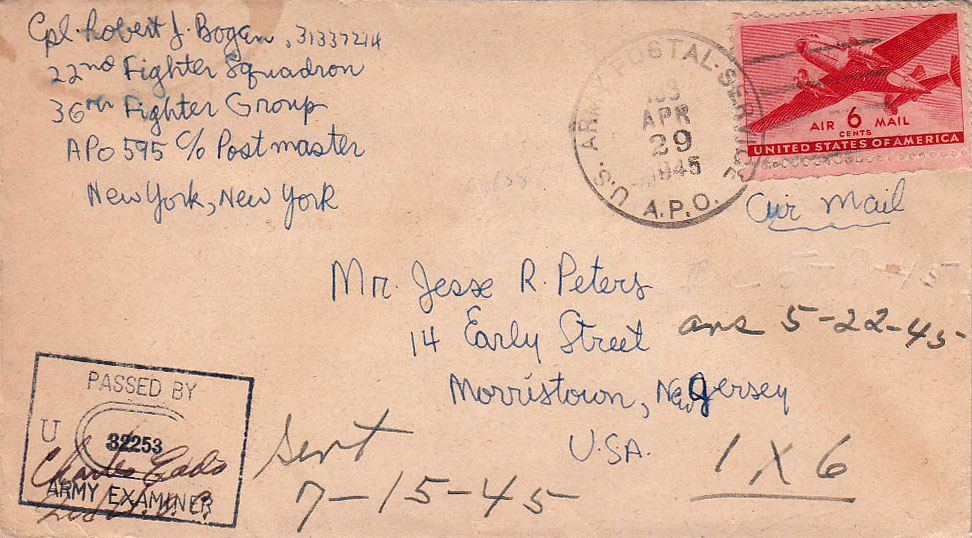 Cpl. Robert J. Bogan, 31337214
22nd Fighter Squadron
36th Fighter Group
APO 595 C/o Postmaster
New York, New York
U.S. ARMY POSTAL SERVICE
APR
29
1945
A.P.O.
AIR 6 MAIL
CENTS
UNITED STATES OF AMERICA
Air Mail
Mr. Jesse R. Peters
14 Early Street
Morristown, New Jersey
U.S.A.
ans 5-22-45
1 X 6
Sent
7-15-45
PASSED BY
U
32253
Charles
ARMY EXAMINER